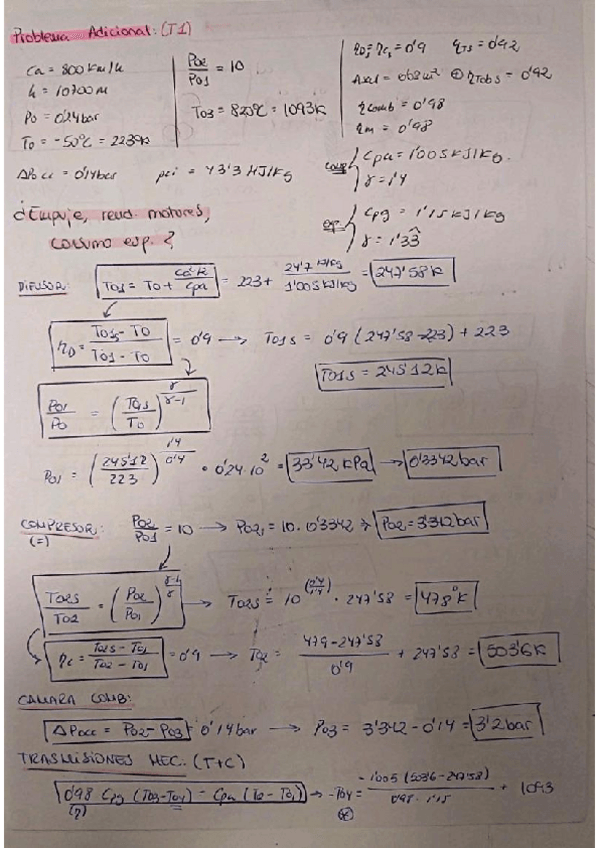 Problema Adicional: (T1)
Ca = 800 km/h
h = 10700 m
P0 = 0'24 bar
T0 = -50ºC = 223ºK
P02/P01 = 10
T03 = 820ºC = 1093K
ηD; ηc; = 0'9 ηTs = 0'92
ηTobs = 0'92
ηcomb = 0'98
ηm = 0'98
ΔPocc = 0'14bar pci = 43'3 MJ/kg
Cpa = 1'005 kJ/kg.
γ = 1'4
Cpg = 1'15 kJ/kg
γ = 1'33
¿Empuje, rend. motores,
consumo esp.?
DIFUSOR: T01 = T0 + Ca²/2/Cpa = 223 + 24'7 kJ/kg / 1'005 kJ/kg = 247'58 K
ηD = T01s - T0 / T01 - T0 = 0'9 → T01s = 0'9 (247'58 - 223) + 223
T01s = 245'12 K
P01/P0 = (T01s/T0)^γ/γ-1
P01 = (245'12/223)^1'4/0'4 · 0'24·10² = 33'42 kPa → 0'3342 bar
COMPRESOR: P02/P01 = 10 → P02, = 10 · 0'3342 ⇒ P02 = 3'342 bar
(=)
T02s/T02 = (P02/P01)^γ-1/γ → T02s = 10^(0'4/1'4) · 247'58 = 478ºK
ηc = T02s - T01 / T02 - T01 = 0'9 → T02 = 479 - 247'58 / 0'9 + 247'58 = 503'6 K
CAMARA COMB:
ΔPocc = P02 - P03 = 0'14 bar → P03 = 3'342 - 0'14 = 3'2 bar
TRASMISIONES MEC. (T+C)
0'98 Cpg (T03 - T04) = Cpa (T02 - T01) → -T04 = -1005 (503'6 - 247'58) / 0'98 · 1'15 + 1093
(η)